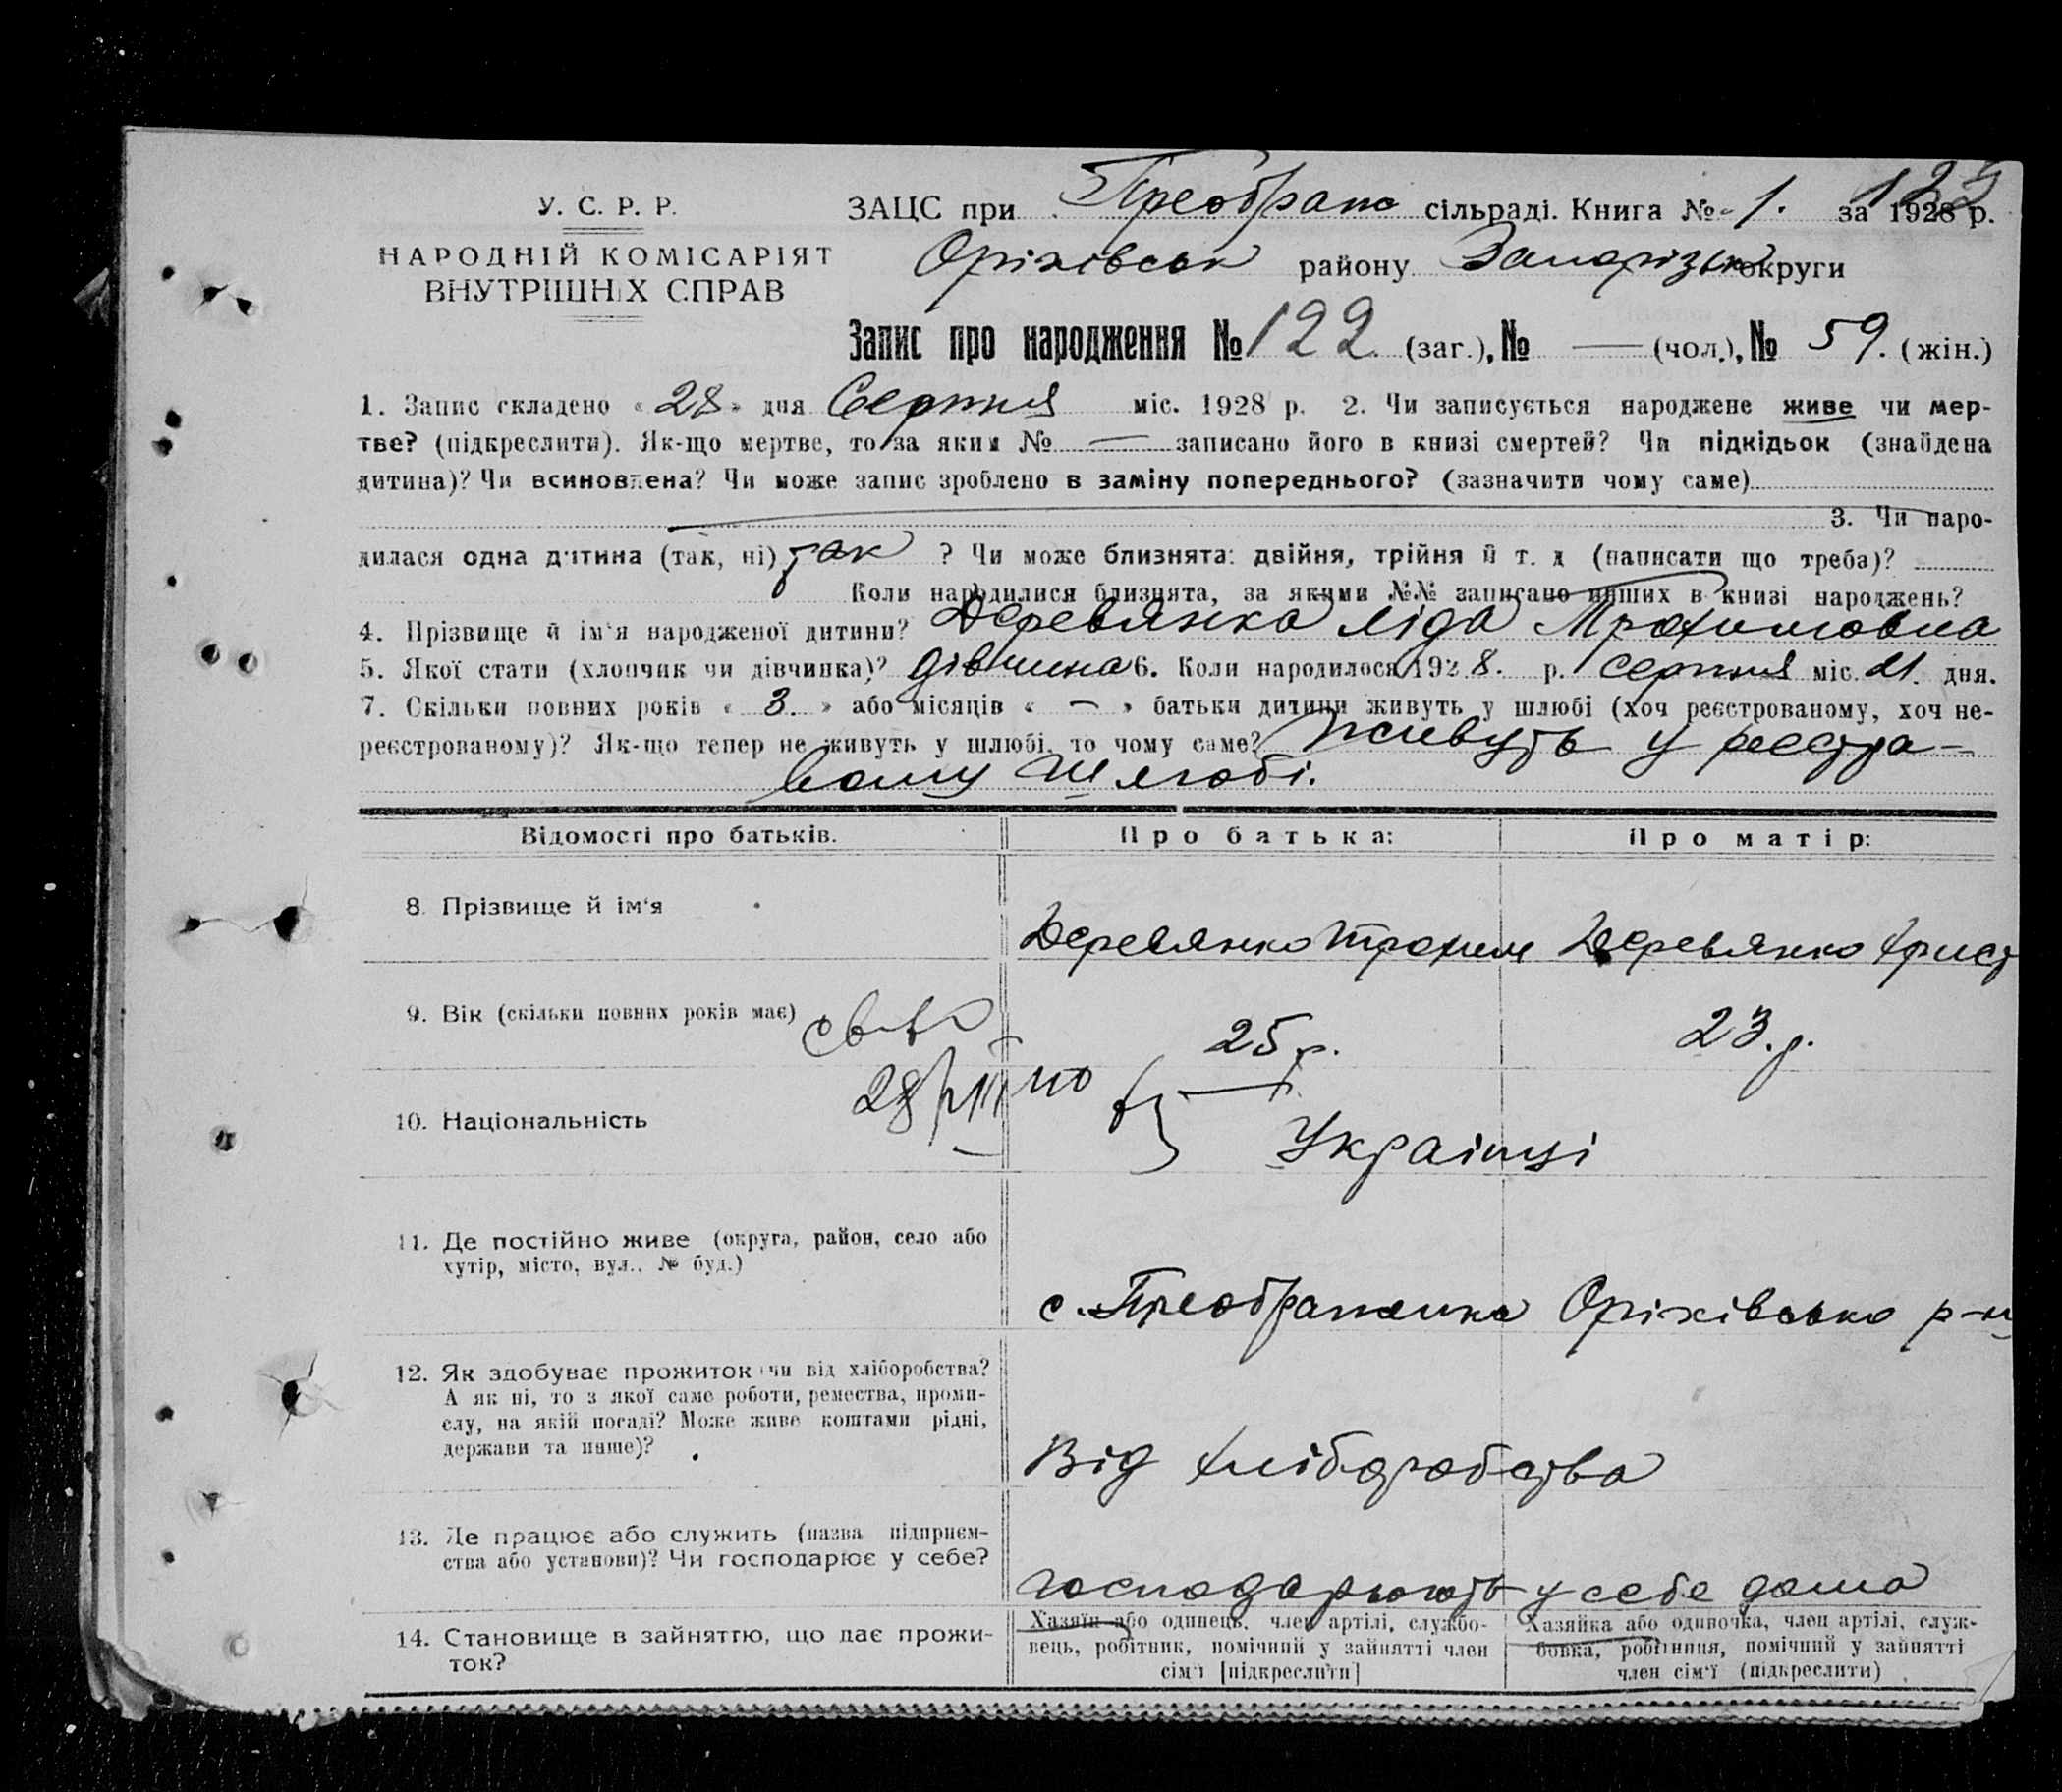 122
У. С. Р. Р.
НАРОДНІЙ КОМІСАРІЯТ
ВНУТРІШНІХ СПРАВ
ЗАЦС при Преображ сільраді. Книга № 1. за 1928 р.
Оріхівськ району Запорізьк округи
Запис про народження № 122 (заг.), № — (чол.), № 59. (жін.)
1. Запис складено «28» дня Серпня міс. 1928 р. 2. Чи записується народжене живе чи мер-
тве? (підкреслити). Як-що мертве, то за яким № — записано його в книзі смертей? Чи підкідьок (знайдена
дитина)? Чи всиновлена? Чи може запис зроблено в заміну попереднього? (зазначити чому саме)
3. Чи наро-
дилася одна дитина (так, ні) так ? Чи може близнята: двійня, трійня й т. д (написати що треба)?
Коли народилися близнята, за якими №№ записано инших в книзі народжень?
4. Прізвище й ім'я народженої дитини? Деревянко Ліда Трохимовна
5. Якої стати (хлопчик чи дівчинка)? дівчина 6. Коли народилося 1928. р. серпня міс. 21. дня.
7. Скільки повних років «3.» або місяців «—» батьки дитини живуть у шлюбі (хоч реєстрованому, хоч не-
реєстрованому)? Як-що тепер не живуть у шлюбі, то чому саме? живуть у реєстра-
вому шлюбі.
Відомості про батьків. Про батька: Про матір:
8. Прізвище й ім'я Деревянко Трохим Деревянко Христ
9. Вік (скільки повних років має) 25 р. 23. р.
28/VIII
10. Національність Українці
11. Де постійно живе (округа, район, село або
хутір, місто, вул., № буд.)
с. Преображенка Оріхівсько р-ну
12. Як здобуває прожиток (чи від хліборобства?
А як ні, то з якої саме роботи, ремества, проми-
слу, на якій посаді? Може живе коштами рідні,
держави та инше)?
Від хліборобства
13. Де працює або служить (назва підприєм-
ства або установи)? Чи господарює у себе?
господарюють у себе дома
14. Становище в зайняттю, що дає прожи-
ток?
Хазяїн або одинець, член артілі, службо-
вець, робітник, помічний у зайнятті член
сім'ї [підкреслити]
Хазяйка або одиночка, член артілі, служ-
бовка, робітниця, помічний у зайнятті
член сім'ї (підкреслити)